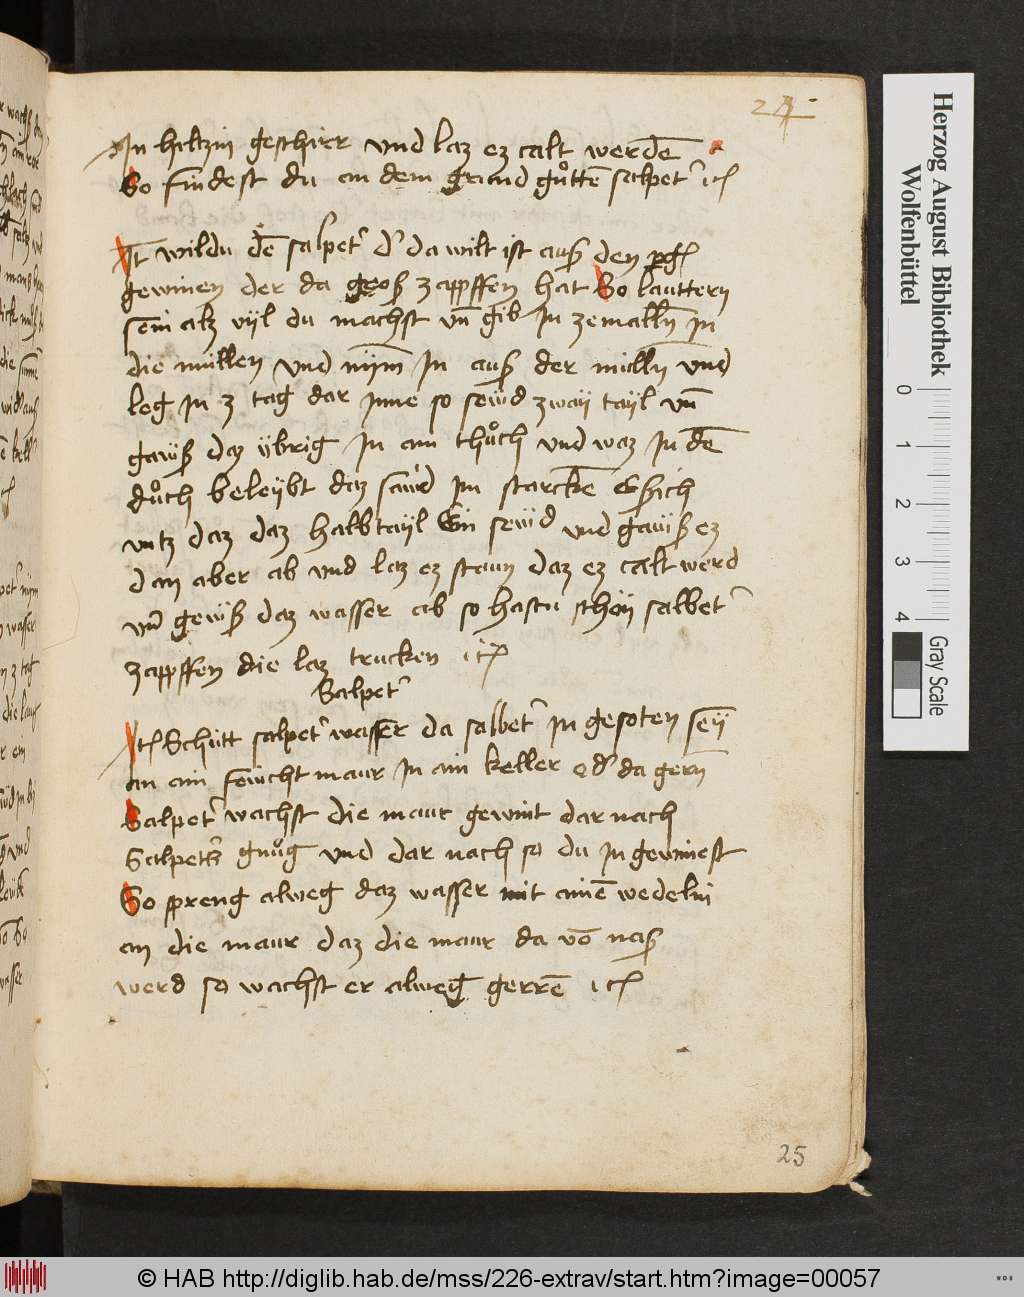 24
In hiltzin geschirr vnd laz ez calt werdē
So findest du an dem grand gůttē salpet' ꝛcͣ
It wildu dē salpet' d' da wilt ist auß den
gewinen der da groß zappffen hat So lauttern
sein alz vijl du machst vn̄ gib In zemalln̄ in
die müllen vnd nym̄ In auß der mülln̄ vnd
leg in 3 tag dar Inne so seüd zway tayl vn̄
gaüß daz ÿbrig In ain thůch vnd waz In dē
důch beleÿbt daz saüd Im starckē Eßich
vntz daz daz halbtaÿl Ein seüd vnd gaüß ez
dan aber ab vnd laz ez staun daz ez calt werd
vn̄ gewß daz wasser ab so hastu schöÿ salbet'
zappffen die laz trucken ꝛcͣ
Salpet'
Itͣ Schütt salpet' wasser da salbet' In gesoten seÿ
an ain feücht maur In ain keller od' da gern̄
Salpet' wachst die maur gewint dar nach
Salpet's gnůg vnd dar nach so du In gewinest
So spreng alweg daz wasser mit ainē wedelin
an die maur daz die maur da vō naß
werd so wachst er alweg gerrē ꝛcͣ
25
Herzog August Bibliothek
Wolfenbüttel
0 1 2 3 4
Gray Scale
© HAB http://diglib.hab.de/mss/226-extrav/start.htm?image=00057